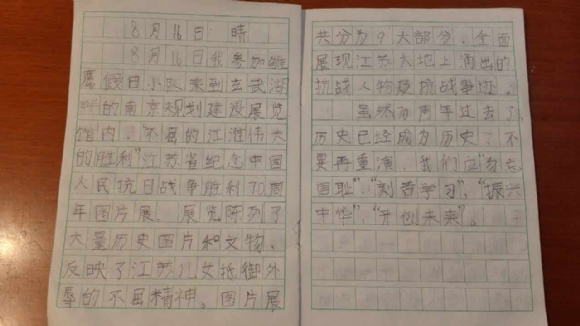 8月16日 晴
8月16日我参加雏
鹰假日小队来到玄武湖
畔的南京规划建设展览
馆内"不屈的江淮伟大
的胜利"江苏省纪念中国
人民抗日战争胜利70周
年图片展。展览陈列了
大量历史图片和文物,
反映了江苏儿女抵御外
辱的不屈精神。图片展
共分为9大部分,全面
展现江苏大地上涌出的
抗战人物及抗战事迹。
虽然 周年过去了,
历史已经成为历史,不
要再重演。我们应"勿忘
国耻"、"刻苦学习"、"振兴
中华"、"开创未来"。